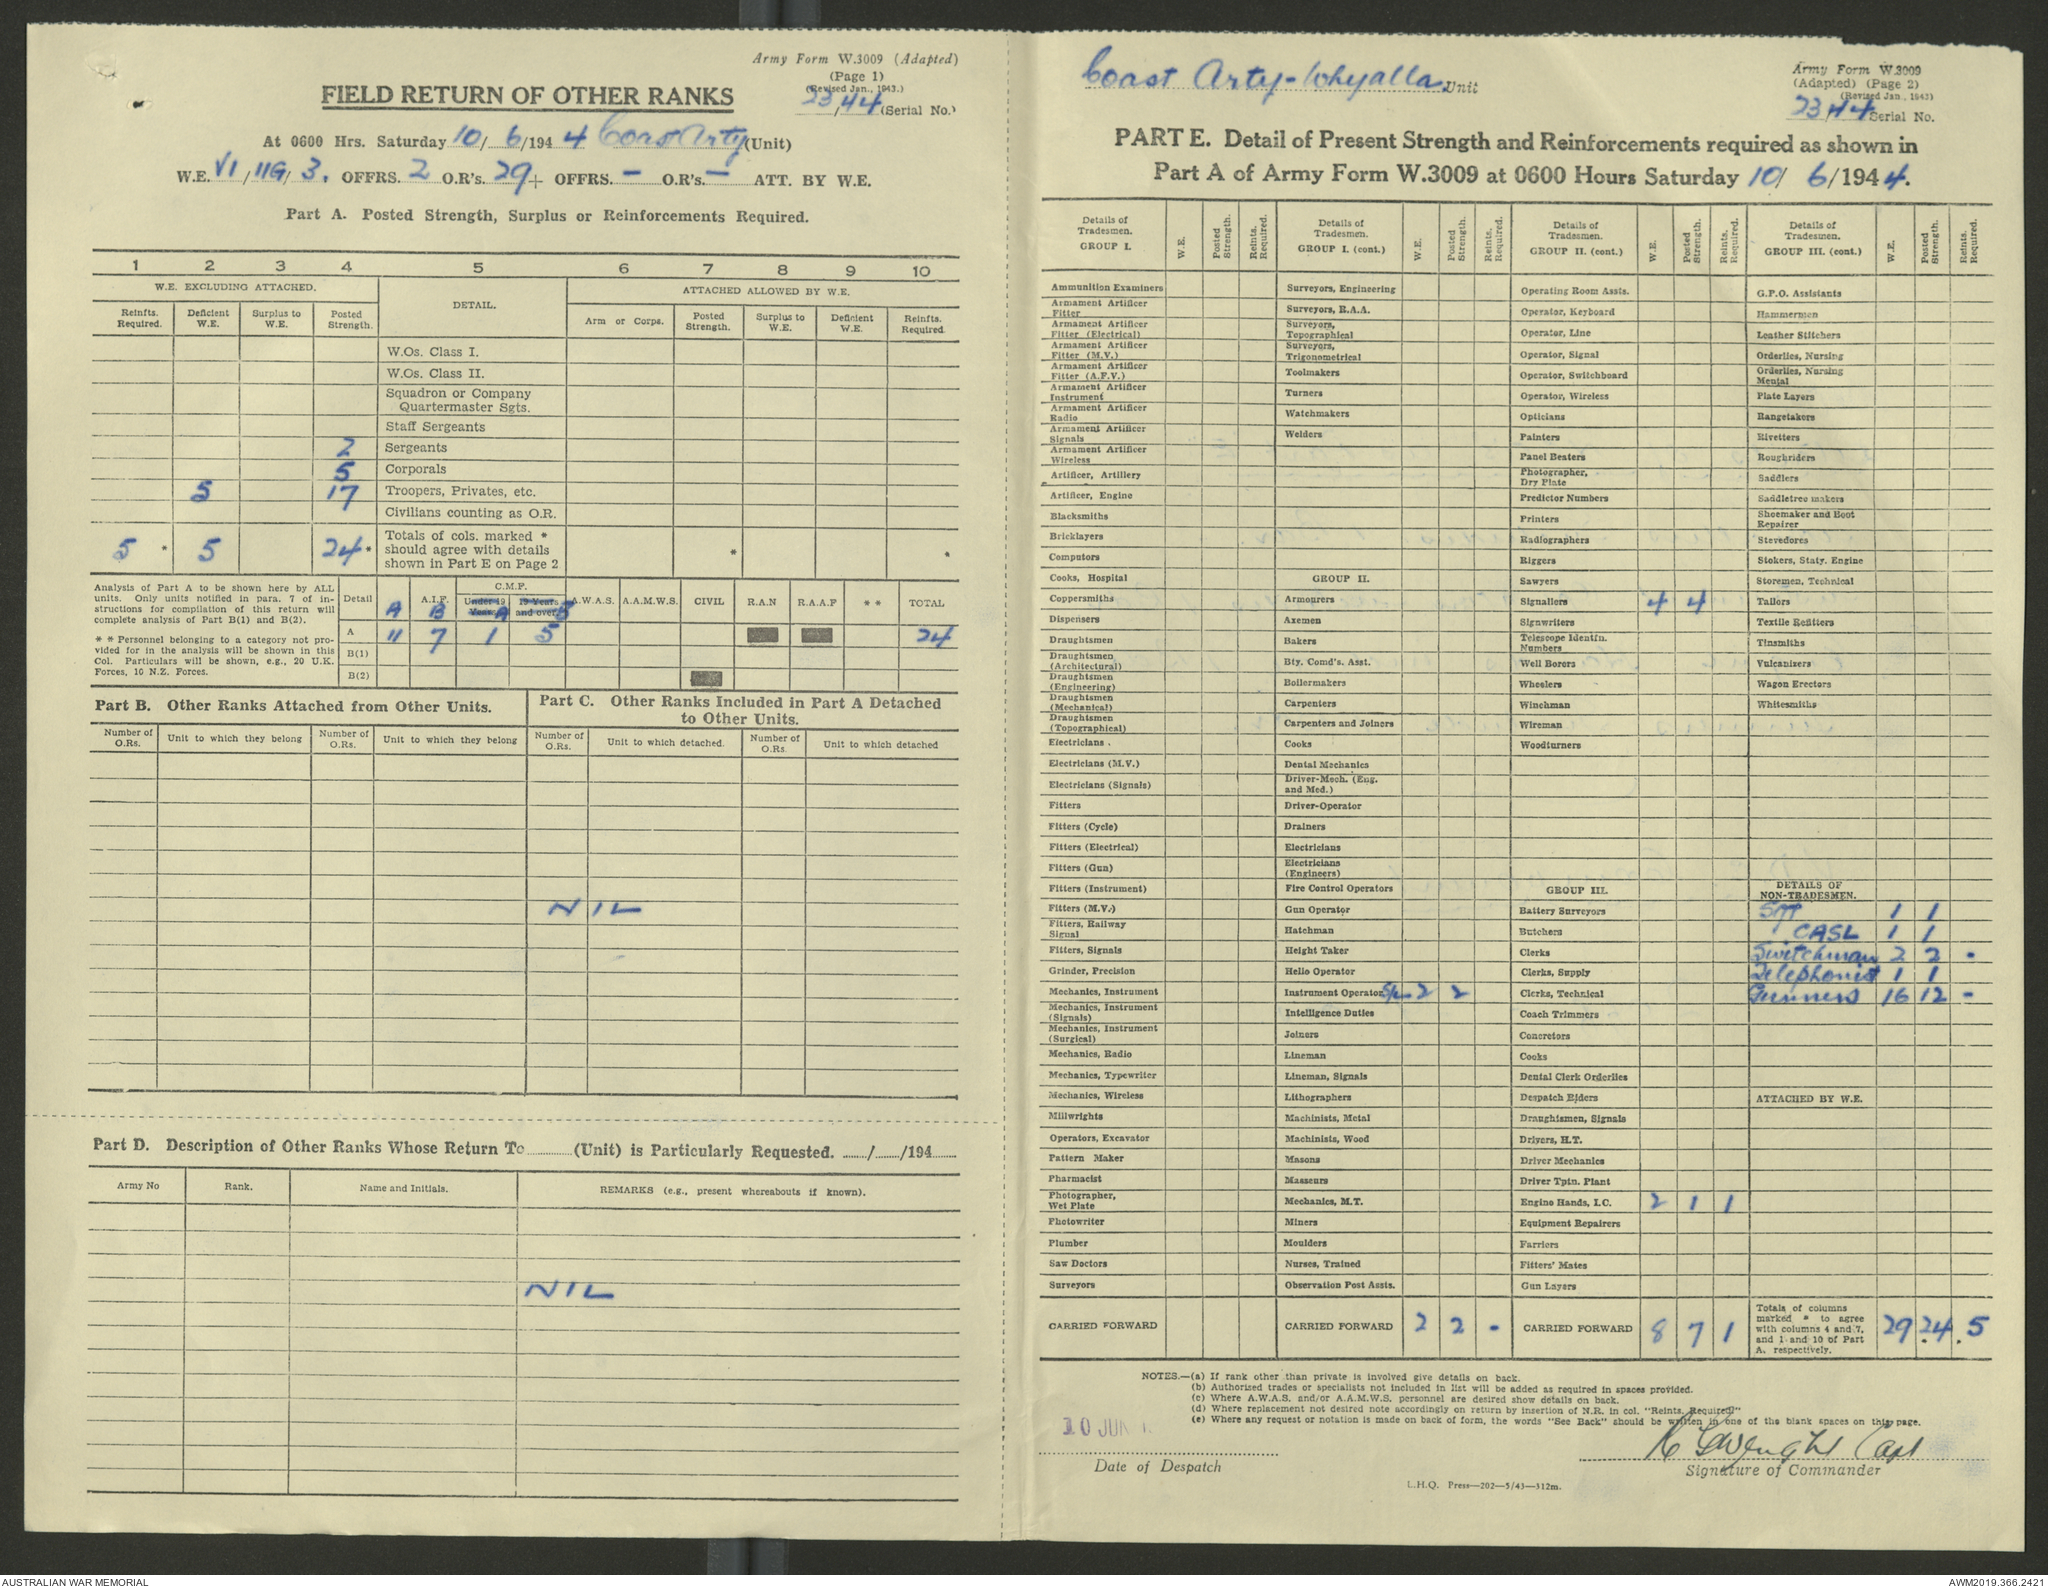 Army Form W.3009 (Adapted)
(Page 1)
(Revised Jan., 1943.)
23/44 (Serial No.)
FIELD RETURN OF OTHER RANKS
At 0600 Hrs. Saturday 10/6/1944 Coast Arty (Unit)
W.E. VI/11G/3. OFFRS. 2 O.R's. 29 + OFFRS. - O.R's. - ATT. BY W.E.
Part A. Posted Strength, Surplus or Reinforcements Required.
1 2 3 4 5 6 7 8 9 10
W.E. EXCLUDING ATTACHED. DETAIL. ATTACHED ALLOWED BY W.E.
Reinfts. Required. Deficient W.E. Surplus to W.E. Posted Strength. Arm or Corps. Posted Strength. Surplus to W.E. Deficient W.E. Reinfts. Required.
W.Os. Class I.
W.Os. Class II.
Squadron or Company Quartermaster Sgts.
Staff Sergeants
2 Sergeants
5 Corporals
5 17 Troopers, Privates, etc.
Civilians counting as O.R.
5 * 5 24 * Totals of cols. marked * should agree with details shown in Part E on Page 2 * *
Analysis of Part A to be shown here by ALL
units. Only units notified in para. 7 of in-
structions for compilation of this return will
complete analysis of Part B(1) and B(2).
* * Personnel belonging to a category not pro-
vided for in the analysis will be shown in this
Col. Particulars will be shown, e.g., 20 U.K.
Forces, 10 N.Z. Forces.
Detail A.I.F. C.M.F. Under 19 Years 19 Years and over A.W.A.S. A.A.M.W.S. CIVIL R.A.N R.A.A.F * * TOTAL
A B A B
A 11 7 1 5 24
B(1)
B(2)
Part B. Other Ranks Attached from Other Units.
Part C. Other Ranks Included in Part A Detached to Other Units.
Number of O.Rs. Unit to which they belong Number of O.Rs. Unit to which they belong Number of O.Rs. Unit to which detached. Number of O.Rs. Unit to which detached
NIL
Part D. Description of Other Ranks Whose Return To (Unit) is Particularly Requested. / /194
Army No Rank. Name and Initials. REMARKS (e.g., present whereabouts if known).
NIL
Coast Arty-Whyalla Unit
Army Form W.3009
(Adapted) (Page 2)
(Revised Jan., 1943)
23/44 Serial No.
PART E. Detail of Present Strength and Reinforcements required as shown in
Part A of Army Form W.3009 at 0600 Hours Saturday 10/6/1944.
Details of Tradesmen. GROUP I. W.E. Posted Strength. Reints. Required.
Ammunition Examiners
Armament Artificer Fitter
Armament Artificer Fitter (Electrical)
Armament Artificer Fitter (M.V.)
Armament Artificer Fitter (A.F.V.)
Armament Artificer Instrument
Armament Artificer Radio
Armament Artificer Signals
Armament Artificer Wireless
Artificer, Artillery
Artificer, Engine
Blacksmiths
Bricklayers
Computors
Cooks, Hospital
Coppersmiths
Dispensers
Draughtsmen
Draughtsmen (Architectural)
Draughtsmen (Engineering)
Draughtsmen (Mechanical)
Draughtsmen (Topographical)
Electricians .
Electricians (M.V.)
Electricians (Signals)
Fitters
Fitters (Cycle)
Fitters (Electrical)
Fitters (Gun)
Fitters (Instrument)
Fitters (M.V.)
Fitters, Railway Signal
Fitters, Signals
Grinder, Precision
Mechanics, Instrument
Mechanics, Instrument (Signals)
Mechanics, Instrument (Surgical)
Mechanics, Radio
Mechanics, Typewriter
Mechanics, Wireless
Millwrights
Operators, Excavator
Pattern Maker
Pharmacist
Photographer, Wet Plate
Photowriter
Plumber
Saw Doctors
Surveyors
CARRIED FORWARD
Details of Tradesmen. GROUP I. (cont.) W.E. Posted Strength. Reints. Required.
Surveyors, Engineering
Surveyors, R.A.A.
Surveyors, Topographical
Surveyors, Trigonometrical
Toolmakers
Turners
Watchmakers
Welders
GROUP II.
Armourers
Axemen
Bakers
Bty. Comd's. Asst.
Boilermakers
Carpenters
Carpenters and Joiners
Cooks
Dental Mechanics
Driver-Mech. (Eng. and Med.)
Driver-Operator
Drainers
Electricians
Electricians (Engineers)
Fire Control Operators
Gun Operator
Hatchman
Height Taker
Helio Operator
Instrument Operator 2 2
Intelligence Duties
Joiners
Lineman
Lineman, Signals
Lithographers
Machinists, Metal
Machinists, Wood
Masons
Masseurs
Mechanics, M.T.
Miners
Moulders
Nurses, Trained
Observation Post Assts.
CARRIED FORWARD 2 2 -
Details of Tradesmen. GROUP II. (cont.) W.E. Posted Strength. Reints. Required.
Operating Room Assts.
Operator, Keyboard
Operator, Line
Operator, Signal
Operator, Switchboard
Operator, Wireless
Opticians
Painters
Panel Beaters
Photographer, Dry Plate
Predictor Numbers
Printers
Radiographers
Riggers
Sawyers
Signallers 4 4
Signwriters
Telescope Identfn. Numbers
Well Borers
Wheelers
Winchman
Wireman
Woodturners
GROUP III.
Battery Surveyors
Butchers
Clerks
Clerks, Supply
Clerks, Technical
Coach Trimmers
Concretors
Cooks
Dental Clerk Orderlies
Despatch Riders
Draughtsmen, Signals
Drivers, H.T.
Driver Mechanics
Driver Tptn. Plant
Engine Hands, I.C. 2 1 1
Equipment Repairers
Farriers
Fitters' Mates
Gun Layers
CARRIED FORWARD 8 7 1
Details of Tradesmen. GROUP III. (cont.) W.E. Posted Strength. Reints. Required.
G.P.O. Assistants
Hammermen
Leather Stitchers
Orderlies, Nursing
Orderlies, Nursing Mental
Plate Layers
Rangetakers
Rivetters
Roughriders
Saddlers
Saddletree makers
Shoemaker and Boot Repairer
Stevedores
Stokers, Staty. Engine
Storemen, Technical
Tailors
Textile Refitters
Tinsmiths
Vulcanizers
Wagon Erectors
Whitesmiths
DETAILS OF NON-TRADESMEN.
Sgt 1 1
CASL 1 1
Switchman 2 2 -
Telephonist 1 1
Gunners 16 12 -
ATTACHED BY W.E.
Totals of columns marked * to agree with columns 4 and 7, and 1 and 10 of Part A, respectively. 29 24 5
NOTES.—(a) If rank other than private is involved give details on back.
(b) Authorised trades or specialists not included in list will be added as required in spaces provided.
(c) Where A.W.A.S. and/or A.A.M.W.S. personnel are desired show details on back.
(d) Where replacement not desired note accordingly on return by insertion of N.R. in col. "Reints. Required"
(e) Where any request or notation is made on back of form, the words "See Back" should be written in one of the blank spaces on this page.
10 JUN
Date of Despatch
Capt
Signature of Commander
L.H.Q. Press—202—5/43—312m.
AUSTRALIAN WAR MEMORIAL
AWM2019.366.2421